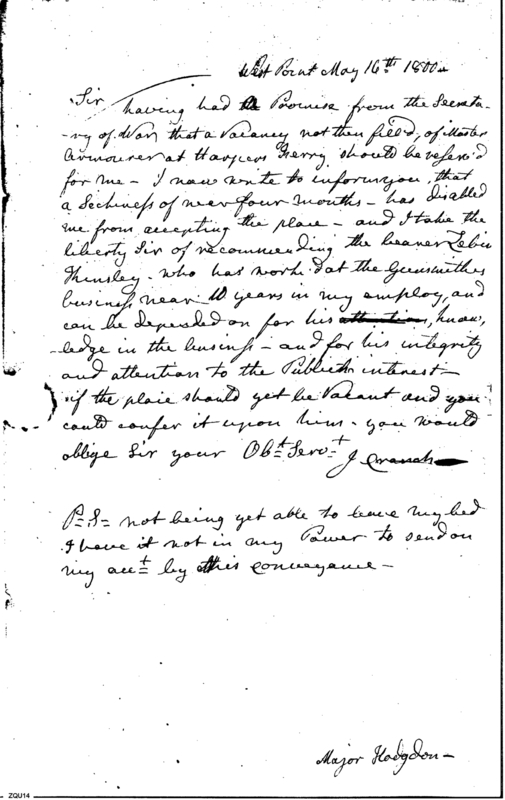 West Point May 16th 1800
Sir
having had the Promise from the Secreta-
-ry of War, that a Vacancy not then filled, of Master
Armourer at Harpers Ferry should be reserv'd
for me - I now write to inform you, that
a Sickness of near four months - has disabled
me from accepting the place - and I take the
liberty Sir of recommending the bearer Zebu
Kinsley - who has work'd at the Gunsmiths
business near 10 years in my employ, and
can be depended on for his attention, know,
-ledge in the business - and for his integrity
and attention to the Publick interest -
if the place should yet be Vacant and you
could confer it upon him - you would
oblige Sir your Obt Servt J Cranch
P=S= not being yet able to leave my bed
I have it not in my Power to send on
my acct by this conveyance -
Major Hodgdon -
ZQU14